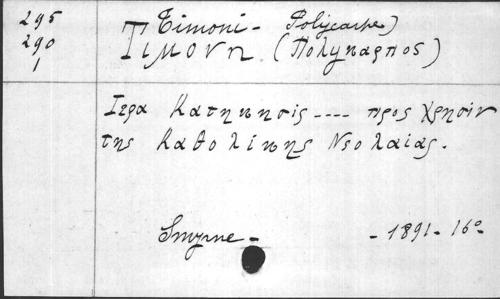 295
290
1
Timoni - Polycarpe)
Τιμονη. (Πολυκαρπος)
Ιερα Κατηχησις ---- προς χρησιν
της Καθολικης Νεολαίας.
Smyrne - - 1891 - 16°